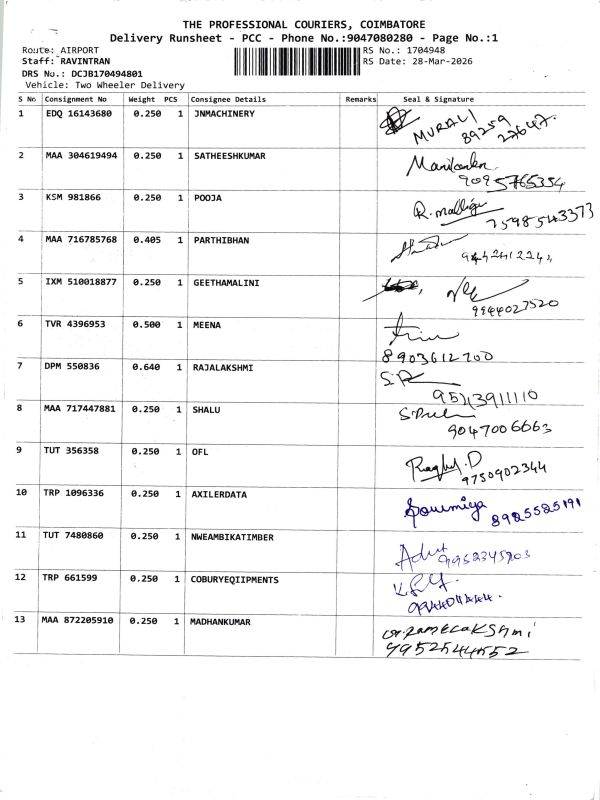 THE PROFESSIONAL COURIERS, COIMBATORE
Delivery Runsheet - PCC - Phone No.:9047080280 - Page No.:1
Route: AIRPORT
RS No.: 1704948
Staff: RAVINTRAN
RS Date: 28-Mar-2026
DRS No.: DCJB170494801
Vehicle: Two Wheeler Delivery
S No Consignment No Weight PCS Consignee Details Remarks Seal & Signature
1 EDQ 16143680 0.250 1 JNMACHINERY MURALI
89259
22647.
2 MAA 304619494 0.250 1 SATHEESHKUMAR
9095765354
3 KSM 981866 0.250 1 POOJA R.
7598543373
4 MAA 716785768 0.405 1 PARTHIBHAN
5 IXM 510018877 0.250 1 GEETHAMALINI
9944027520
6 TVR 4396953 0.500 1 MEENA
8903612700
7 DPM 550836 0.640 1 RAJALAKSHMI
8 MAA 717447881 0.250 1 SHALU
9047006663
9 TUT 356358 0.250 1 OFL Raghu.D
9750902344
10 TRP 1096336 0.250 1 AXILERDATA Soumiya
8925525191
11 TUT 7480860 0.250 1 NWEAMBIKATIMBER
12 TRP 661599 0.250 1 COBURYEQIIPMENTS
13 MAA 872205910 0.250 1 MADHANKUMAR
9952544552